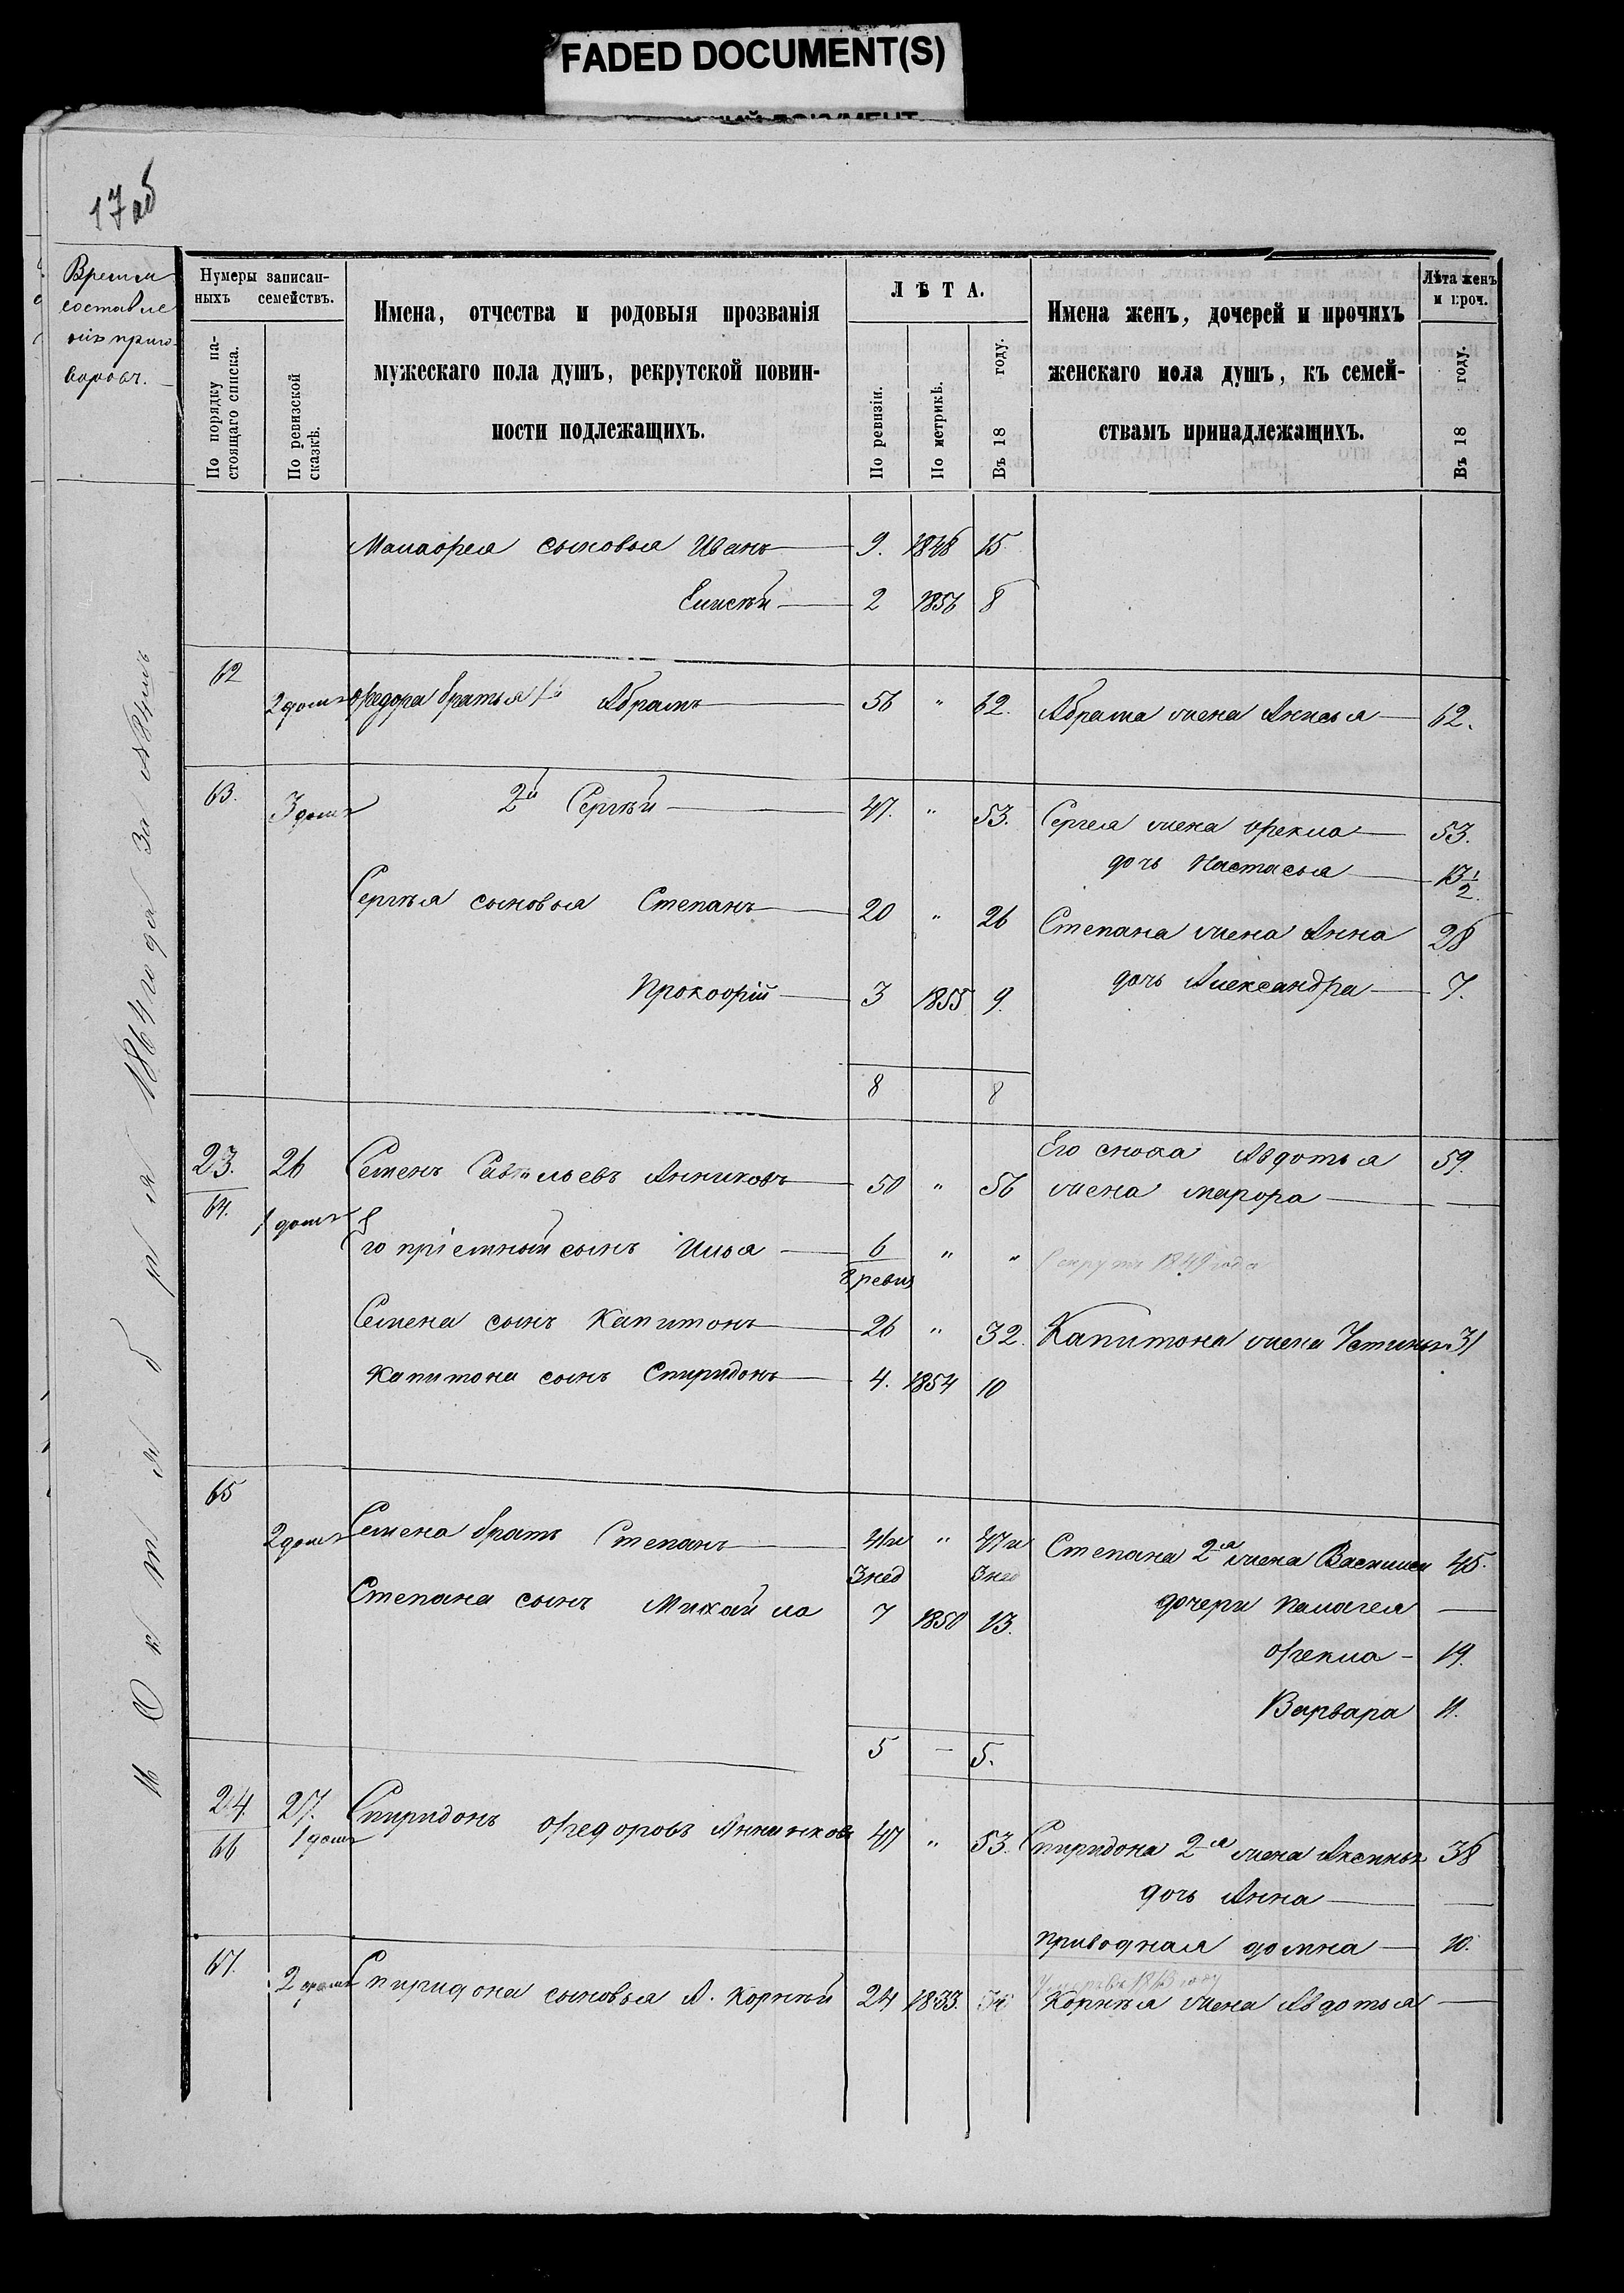 FADED DOCUMENT(S)
17 об
Время
составле
нія приго-
воровъ.
16 Октября 1864 года за №
Нумеры записан-
ныхъ семействъ.
По порядку на-
стоящаго списка.
По ревизской
сказкѣ.
Имена, отчества и родовыя прозванія
мужескаго пола душъ, рекрутской повин-
ности подлежащихъ.
ЛѢТА.
По ревизіи.
По метрикѣ.
Въ 18 году.
Имена женъ, дочерей и прочихъ
женскаго пола душъ, къ семей-
ствамъ принадлежащихъ.
Лѣта женъ
и проч.
Въ 18 году.
сыновья Иванъ 9. 1848 15
Елисѣй 2 1856 8
62 2 домъ Федора братья 1й Абрамъ 56 " 62. Абрама жена Анисья 62.
63. 3 домъ 2й Сергѣй 47. " 53. Сергея жена Фекла 53.
дочь Настасья 13 1/2
Сергѣя сыновья Степанъ 20 " 26 Степана жена Анна 28
Прокофій 3 1855 9. дочь Александра 7.
8 8
Его сноха Авдотья 59.
23. 26 Семенъ Савельевъ Анниковъ 50 " 56 жена Марфа —
64. 1 домъ Его пріемный сынъ Илья 6 " " Рекрутъ 1849 года
8 ревиз
Семена сынъ Капитонъ 26 " 32. Капитона жена Устинья 31
Капитона сынъ Спиридонъ 4. 1854 10
65 2 домъ Семена братъ Степанъ 41 и " 47 и Степана 2я жена Василиса 45.
3 нед 3 нед
Степана сынъ Михайла 7 1850 13. дочери Палагея —
Фекла - 19.
Варвара 11.
5 — 5.
24. 27. Спиридонъ Федоровъ Анненковъ 47 " 53. Спиридона 2я жена Аксинья 38
66 1 домъ
дочь Анна —
приводная Домна 10.
67. 2 домъ Спиридона сыновья А. Корнѣй 24 1833. Корнѣя жена Авдотья —